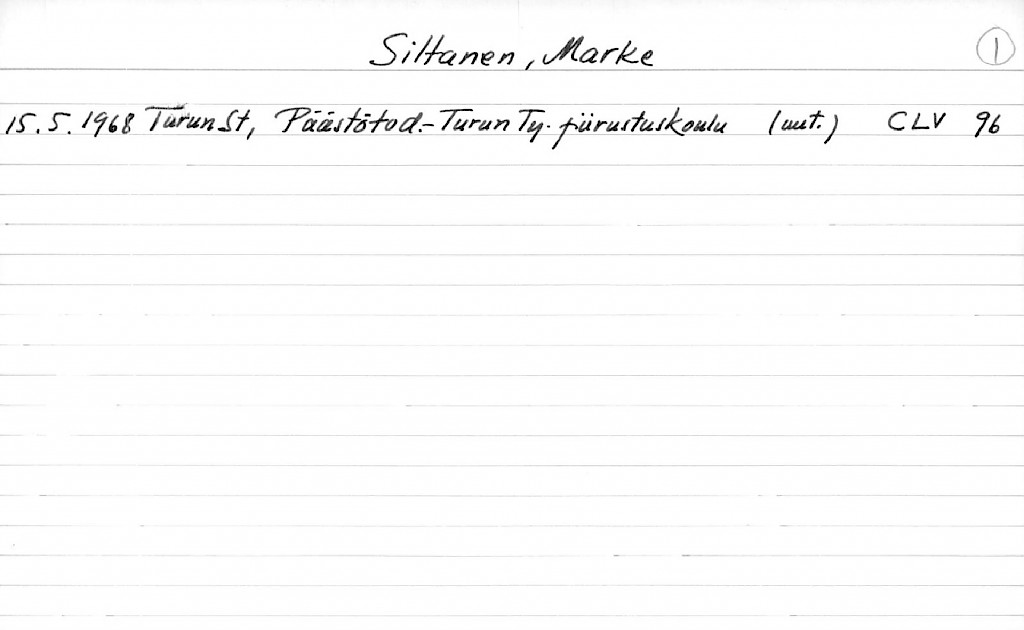 Siltanen, Marke 1
15.5.1968 Turun St, Päästötod.- Turun Ty. piirustuskoulu (uut.) CLV 96